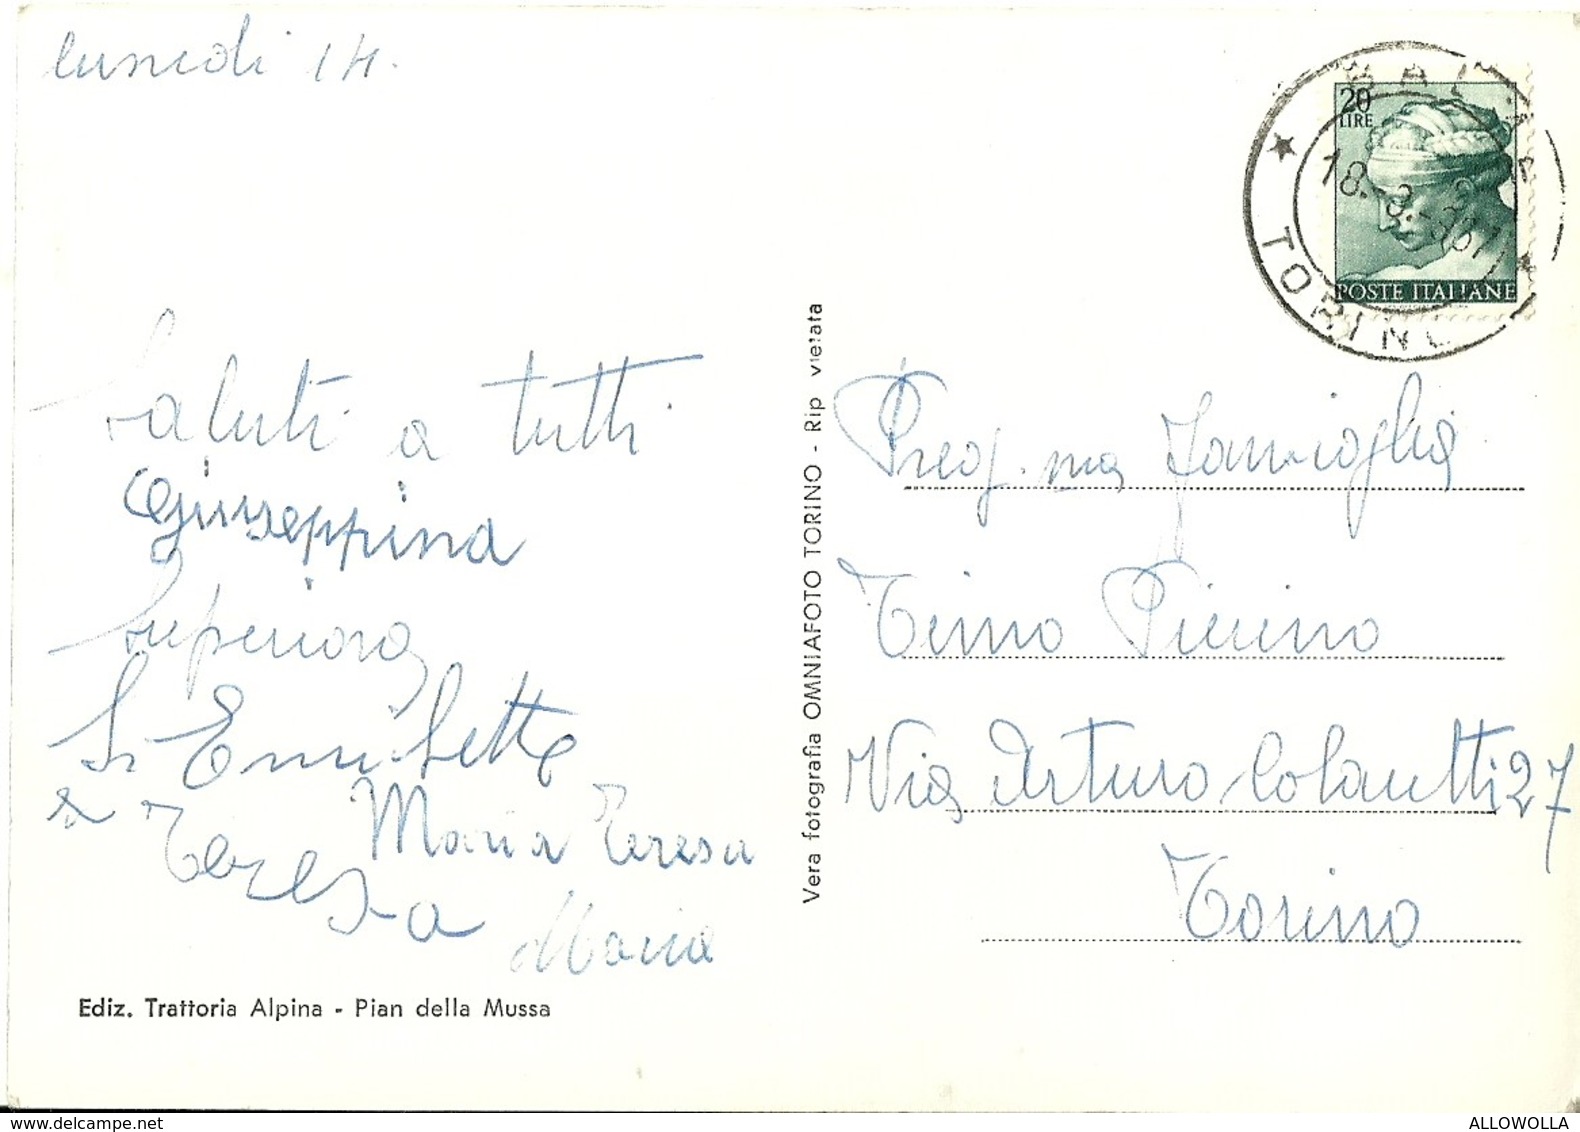 lunedi 14.
20
LIRE
POSTE ITALIANE
TORINO
saluti a tutti
Giuseppina
Superiora
Sr Enrichetta
Sr Teresa
Maria Teresa
Maria
Ediz. Trattoria Alpina - Pian della Mussa
Vera fotografia OMNIAFOTO TORINO - Rip vietata
Preg.ma Famiglia
Pierino
Via Arturo Colautti 27
Torino
www.delcampe.net
ALLOWOLLA